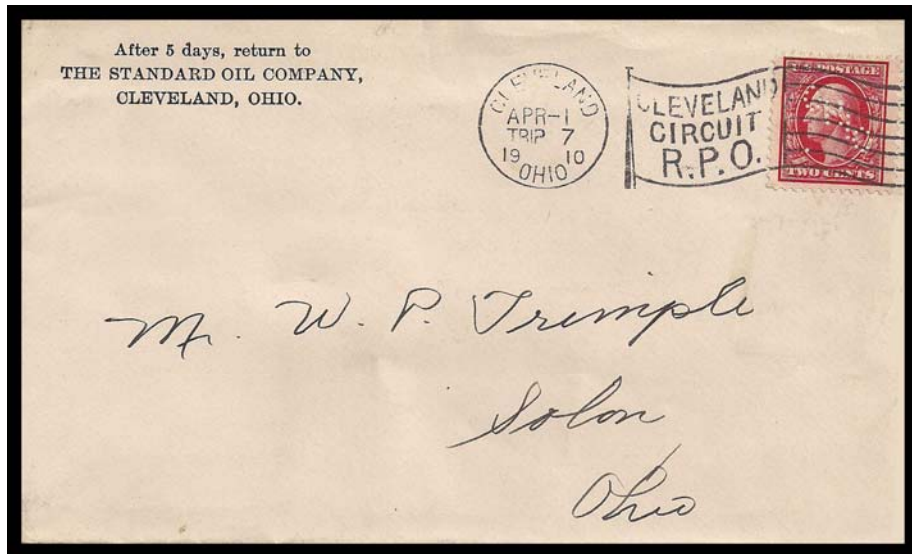 After 5 days, return to
THE STANDARD OIL COMPANY,
CLEVELAND, OHIO.
CLEVELAND
APR-1
TRIP 7
19 10
OHIO
CLEVELAND
CIRCUIT
R.P.O.
U.S. POSTAGE
TWO CENTS
Mr. W. P. Trimple
Solon
Ohio